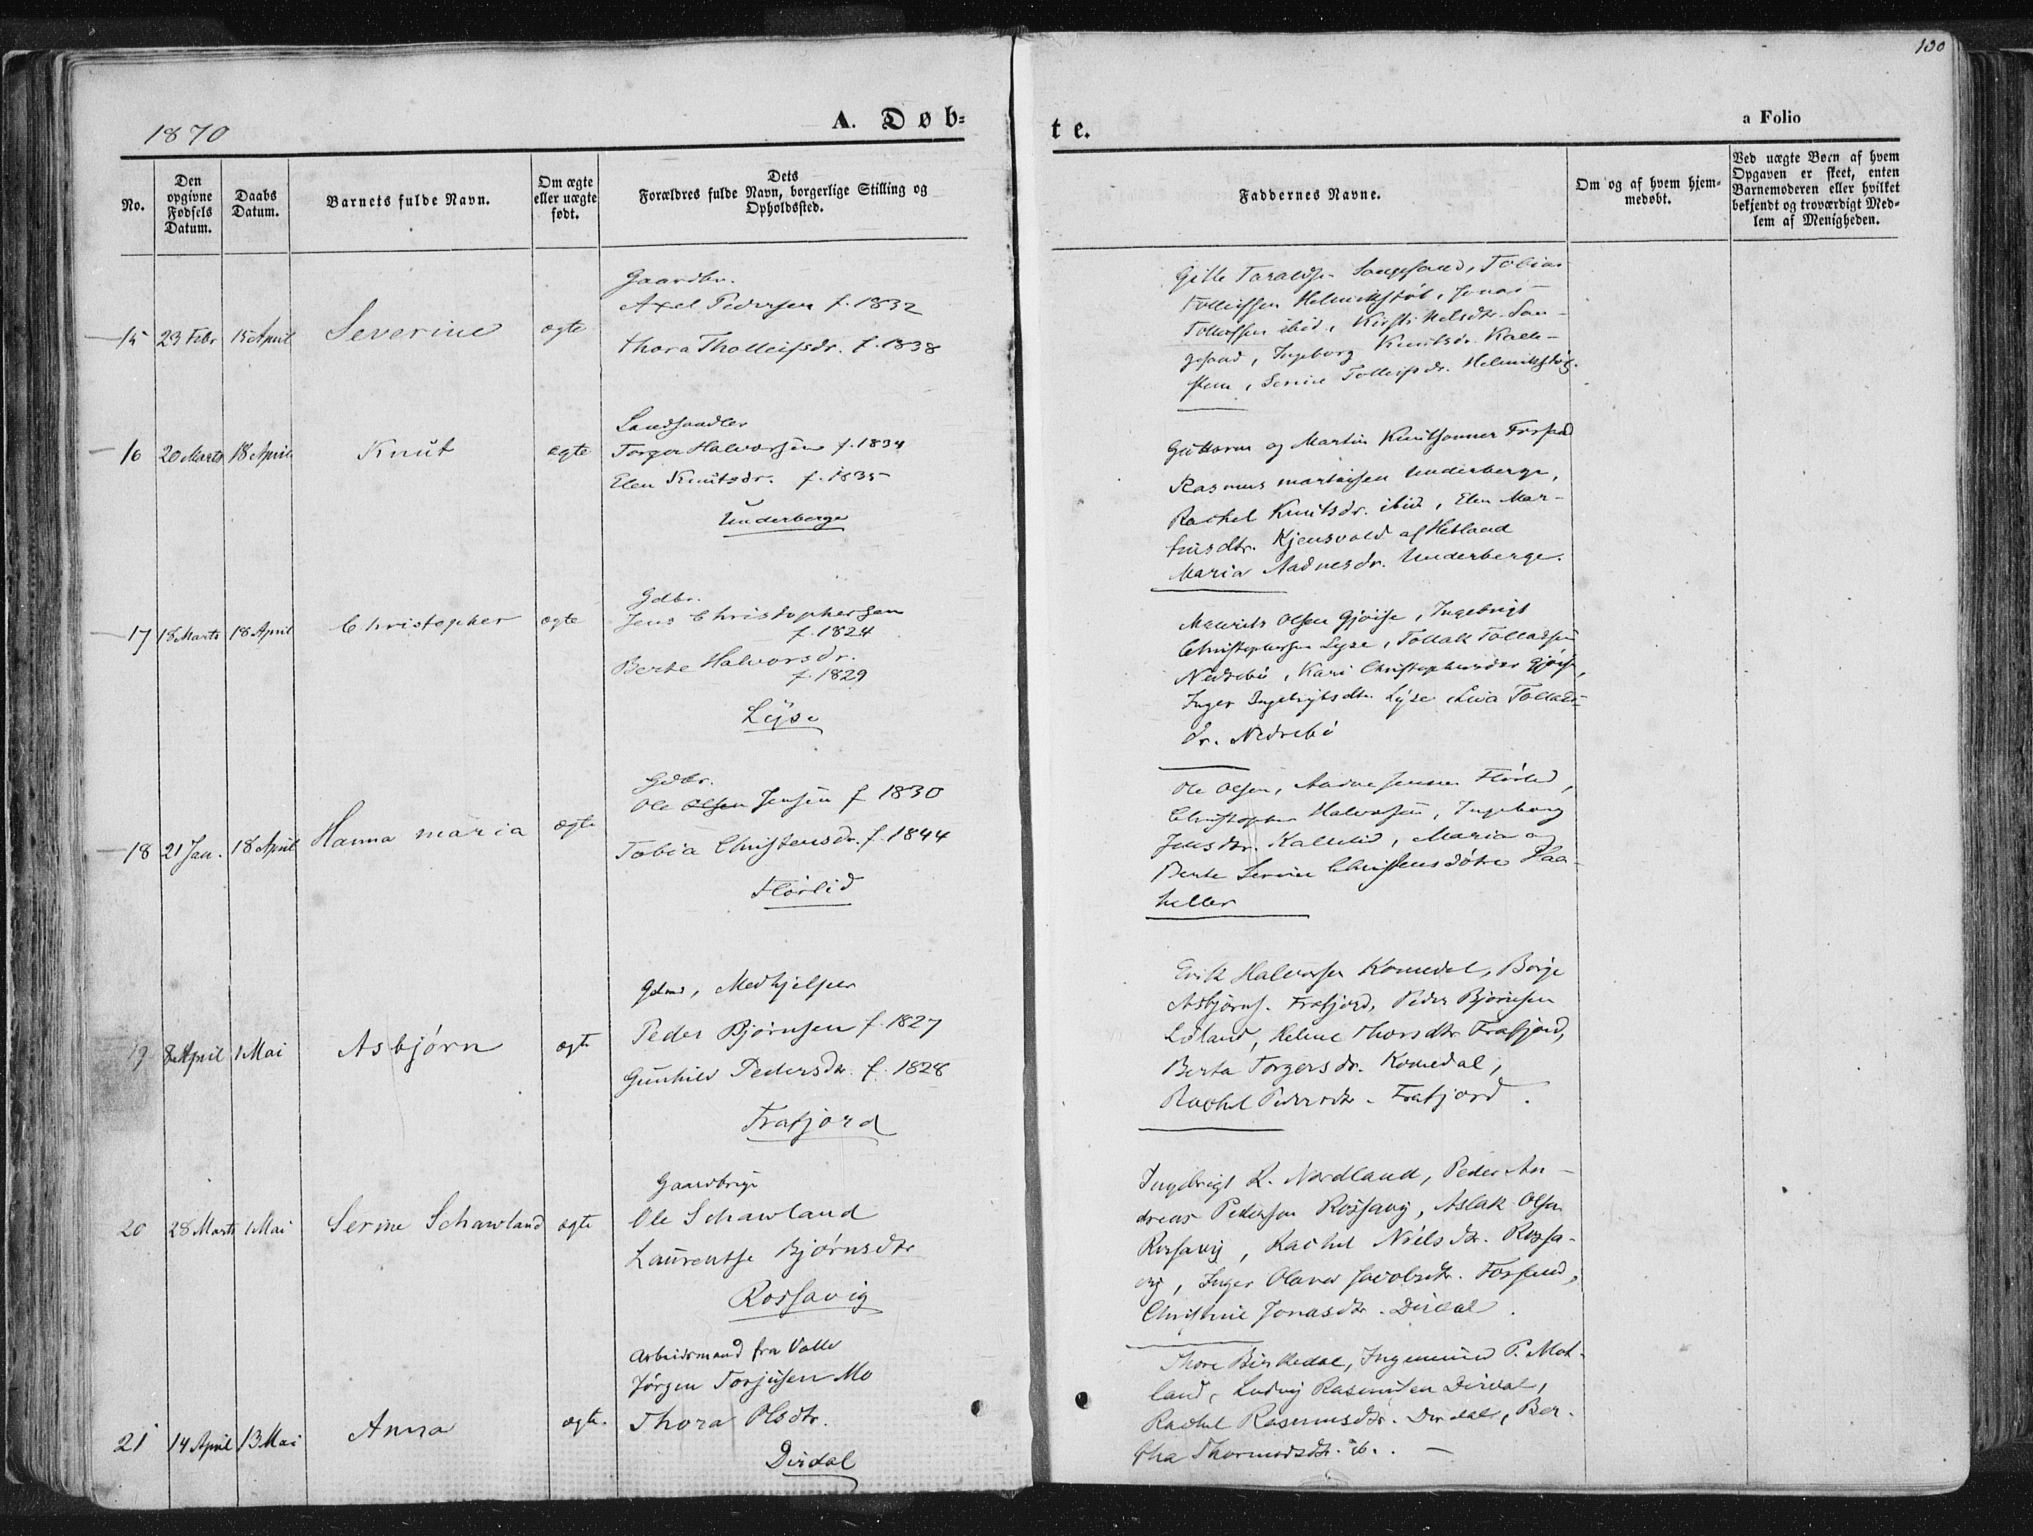 130
1870
A. Døb=
te.
a Folio
No.
Den opgivne Fødsels Datum.
Daabs Datum.
Barnets fulde Navn.
Om ægte eller uægte født.
Dets Forældres fulde Navn, borgerlige Stilling og Opholdssted.
Faddernes Navne.
Om og af hvem hjemmedøbt.
Ved uægte Børn af hvem Opgaven er skeet, enten Barnemoderen eller hvilket bekjendt og troværdigt Medlem af Menigheden.
15 23 Febr 15 April Severine ægte
Gaardbr.
Axel Pedersen f. 1832
Thora Tholleifsdr. f. 1838
Gitle Taraldsen Songesand, Tobias
Tolleifsen Helmikstøl, Jonas
Tolleifsen ibid, Kirsti Nelsdtr. Son-
gesand, Ingeborg Knutsdr. Kalle-
stein, Serine Tolleifsdr. Helmikstøl.
16 20 Marts 18 April Knut ægte
Landhandler
Torger Halvorsen f. 1834
Elen Knutsdr. f. 1835
Underberge
Guttorm og Martin Knutsønner Forsand
Rasmus Martinsen Underberge,
Rachel Knutsdr. ibid, Elen Mar-
tinsdtr. Kjensvold af Hetland
Maria Aadnesdr. Underberge.
17 18 Marts 18 April Christopher ægte
Gdbr.
Jens Christophersen
f. 1824
Berte Halvorsdr.
f. 1829
Lyse
Maurits Olsen Gjøise, Ingebrigt
Christophersen Lyse, Tollak Tolladsen
Nedrebø, Kari Christophersdtr Gjøise,
Inger Ingebrigtsdtr. Lyse, Liva Tollads-
dr. Nedrebø
18 21 Jan. 18 April Hanna Maria ægte
Gdbr.
Ole Olsen Jensen f 1830
Tobia Christensdr. f. 1844
Flørlid
Ole Olsen, Aadne Jensen Flørlid,
Christopher Halvorsen, Ingeborg
Jensdtr. Kallelid, Maria og
Berte Serine Christensdøtre Haa-
heller
19 8 April 1 Mai Asbjørn ægte
Gdmd, Medhjelper
Peder Bjørnsen f. 1827
Gunhild Pedersdtr. f. 1828
Frafjord
Erik Halvorsen Komedal, Børge
Asbjørns. Frafjord, Peder Bjørnsen
Løland, Helene Thorsdtr Frafjord,
Berta Torgersdr. Komedal,
Rachel Pedersdtr. Frafjord.
20 28 Marts 1 Mai Serine Schawland ægte
Gaardbruger
Ole Schawland
Laurentse Bjørnsdtr
Rossavig
Ingebrigt R. Nordland, Peder An-
dreas Pedersen Rossavig, Aslak Olsen
Rossavig, Rachel Nielsdtr. Rossa-
vig, Inger Olava Jacobsdtr. Forsand,
Christine Jonasdtr. Dirdal.
21 14 April 13 Mai Anna ægte.
Arbeidsmand fra Valle
Jørgen Torjusen Mo
Thora Olsdtr.
Dirdal
Thore Birkedal, Ingemund P. Mot-
land, Ludvig Rasmussen Dirdal,
Rachel Rasmusdtr. Dirdal, Ber-
tha Thormodsdtr. ib. —